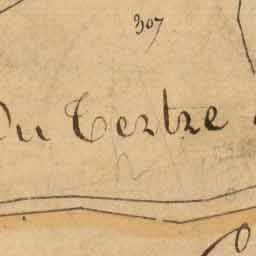 307
Du Tertre